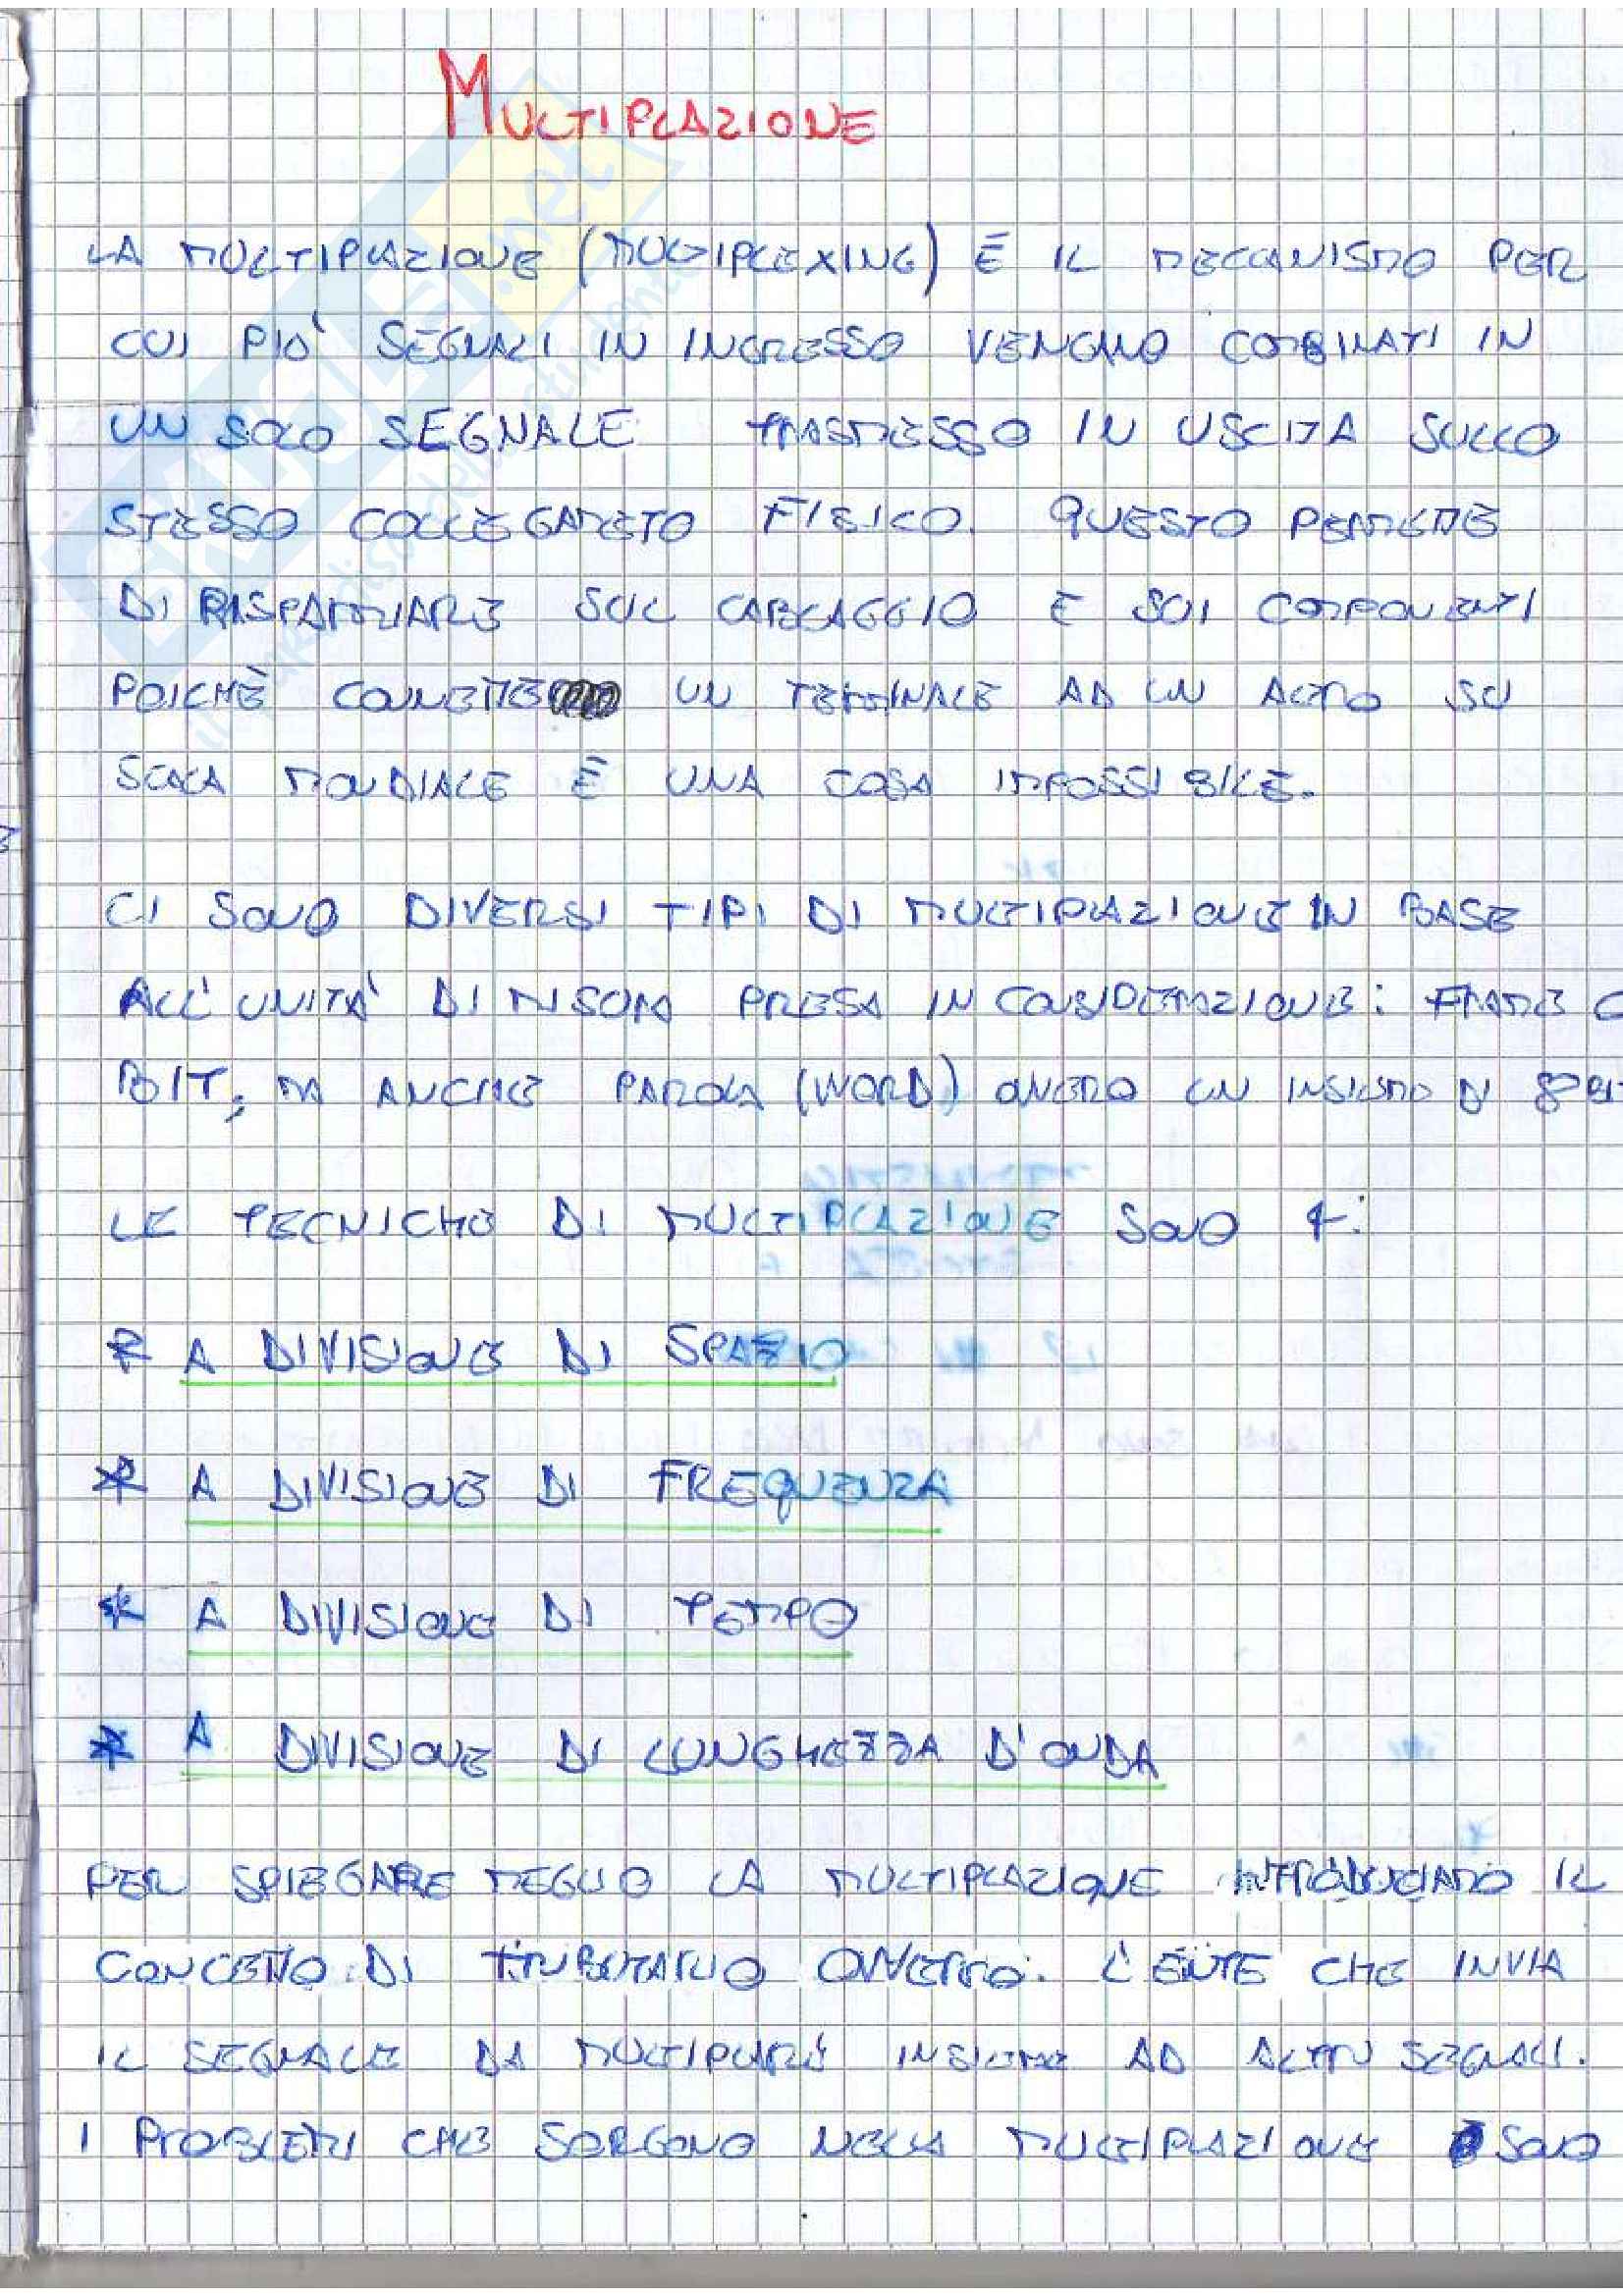 MULTIPLAZIONE
LA MULTIPLAZIONE (MULTIPLEXING) È IL MECCANISMO PER
CUI PIÙ SEGNALI IN INGRESSO VENGONO COMBINATI IN
UN SOLO SEGNALE TRASMESSO IN USCITA SULLO
STESSO COLLEGAMETO FISICO. QUESTO PERMETTE
DI RISPARMIARE SUL CABLAGGIO E SUI COMPONENTI
POICHÈ CONNETTERE UN TERMINALE AD UN ALTRO SU
SCALA MONDIALE È UNA COSA IMPOSSIBILE.
CI SONO DIVERSI TIPI DI MULTIPLAZIONE IN BASE
ALL'UNITA' DI MISURA PRESA IN CONSIDERAZIONE: FRAME O
BIT, MA ANCHE PAROLA (WORD) OVVERO UN INSIEME DI 8 BIT
LE TECNICHE DI MULTIPLAZIONE SONO 4:
* A DIVISIONE DI SPAZIO
* A DIVISIONE DI FREQUENZA
* A DIVISIONE DI TEMPO
* A DIVISIONE DI LUNGHEZZA D'ONDA
PER SPIEGARE MEGLIO LA MULTIPLAZIONE INTRODUCIAMO IL
CONCETTO DI TRIBUTARIO OVVERO. L'ENTE CHE INVIA
IL SEGNALE DA MULTIPLARE INSIEME AD ALTRI SEGNALI.
I PROBLEMI CHE SORGONO NELLA MULTIPLAZIONE SONO
SKUOLA.net